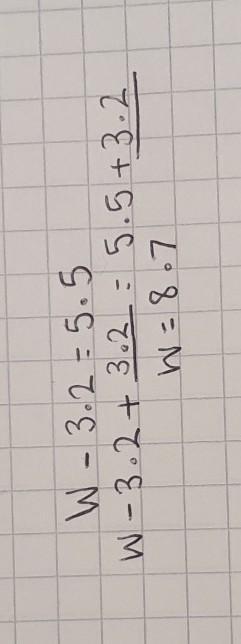 W - 3.2 = 5.5
W - 3.2 + 3.2 = 5.5 + 3.2
W = 8.7